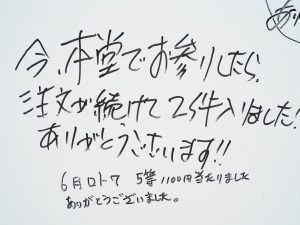 あり
今、本堂でお参りしたら、
注文が続けて25件入りました!
ありがとうございます!!
6月ロト7 5等1100円当たりました
ありがとうございました。